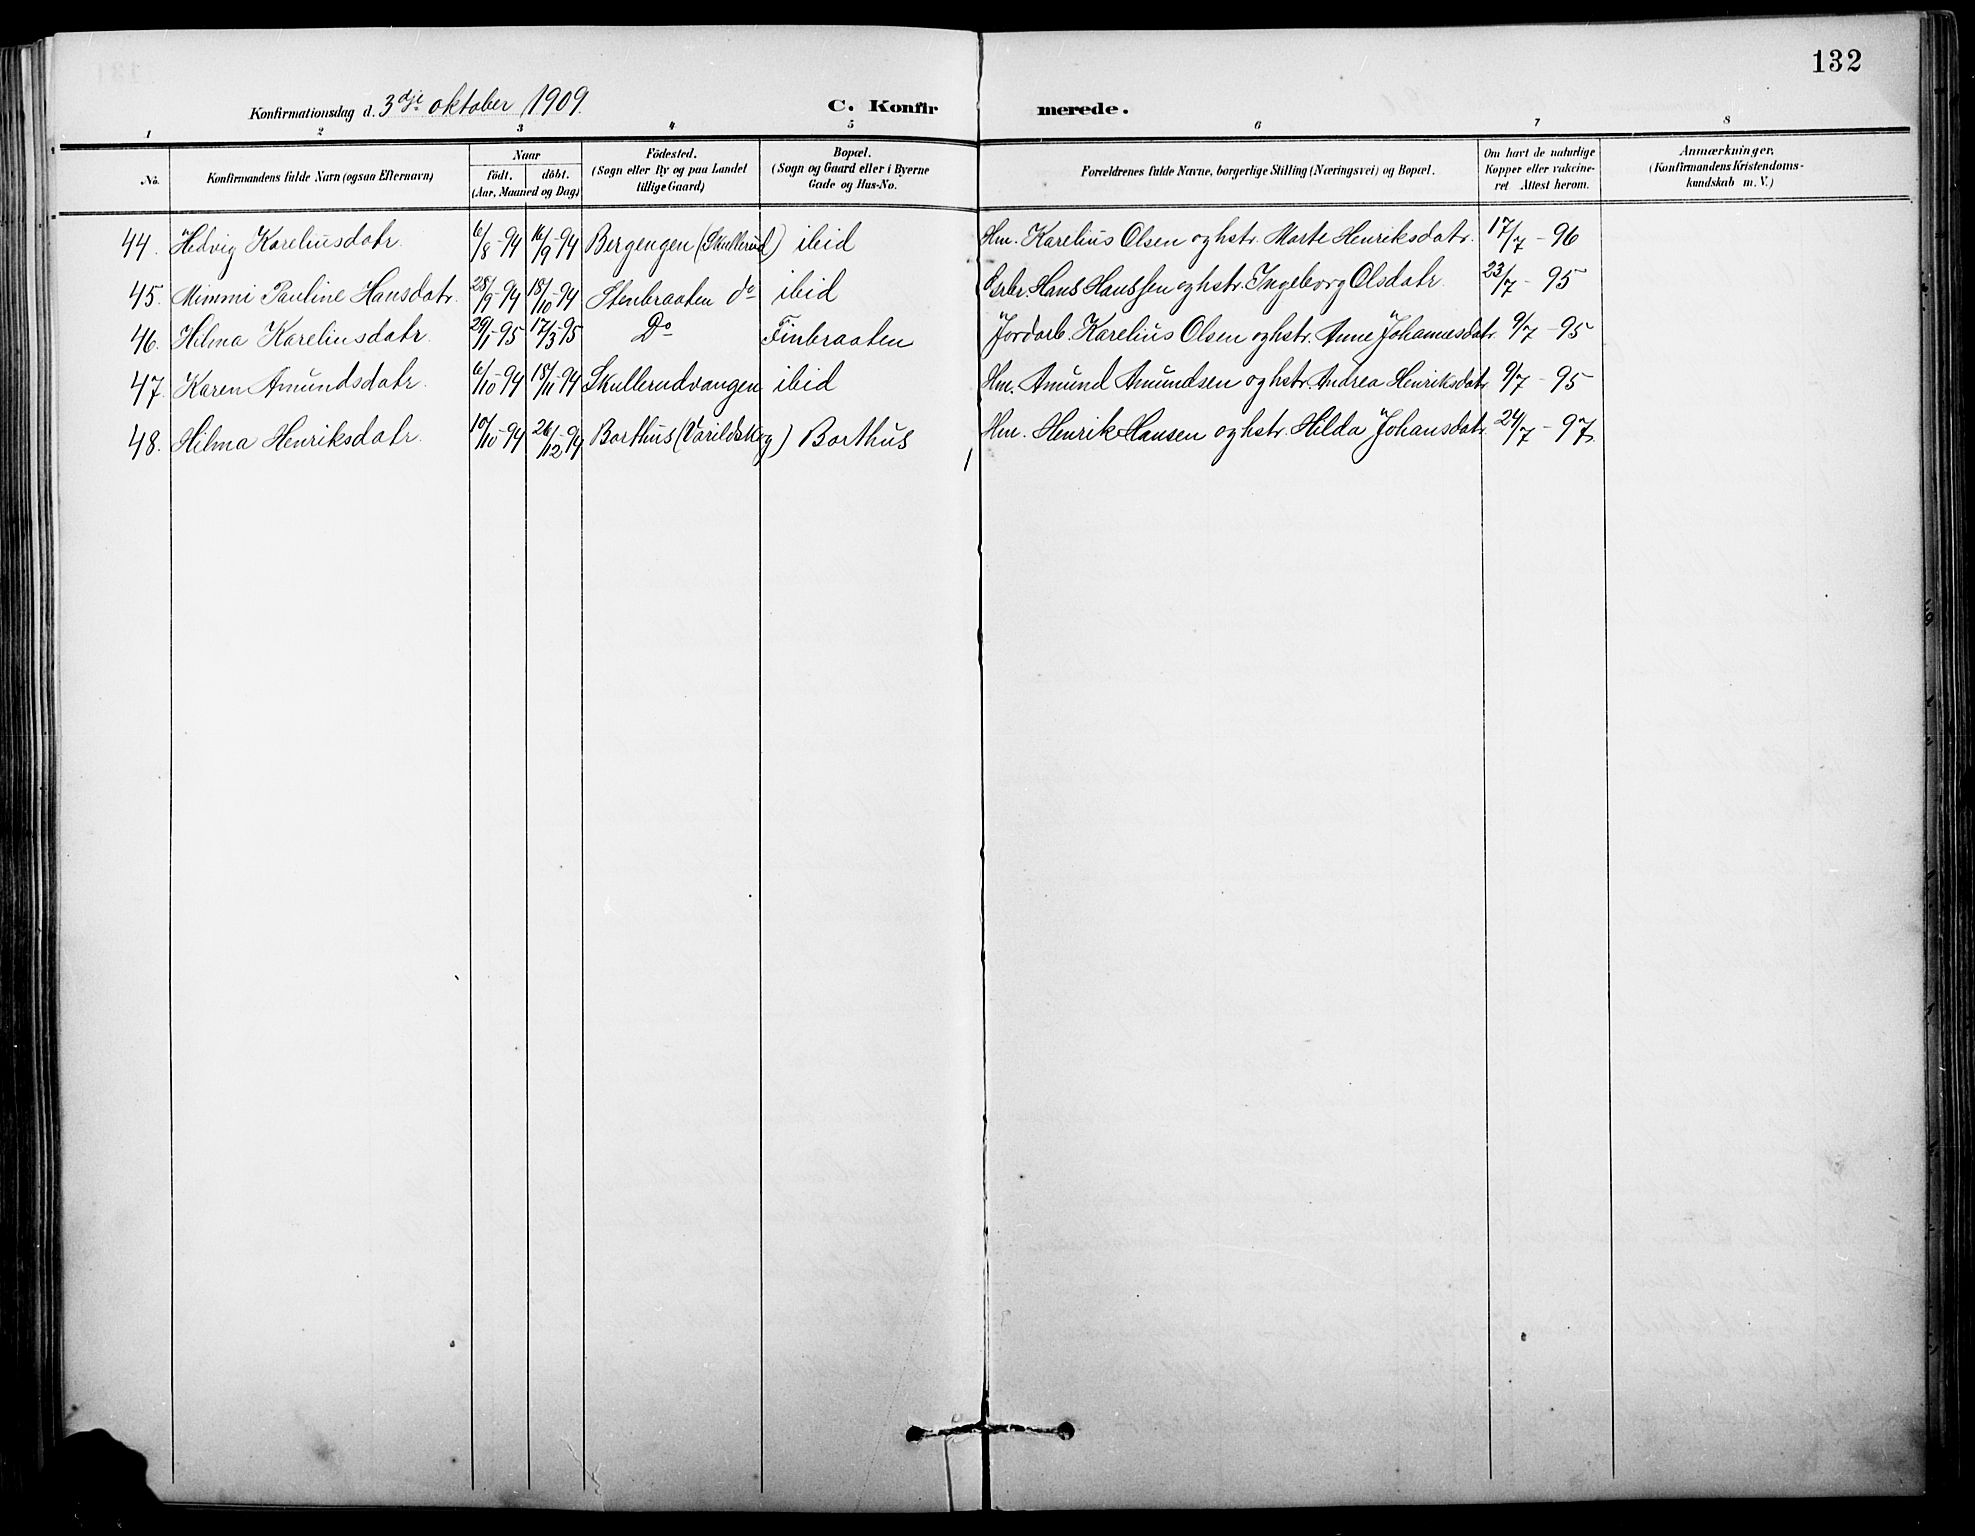 132
Konfirmationsdag d. 3dje oktober 1909.
C. Konfirmerede.
1 2 3 4 5 6 7 8
No. Konfirmandens fulde Navn (ogsaa Efternavn) Naar födt. döbt. (Aar, Maaned og Dag) Födested. (Sogn eller By og paa Landet tillige Gaard) Bopæl. (Sogn og Gaard eller i Byerne Gade og Hus-No. Forældrenes fulde Navne, borgerlige Stilling (Næringsvei) og Bopæl. Om havt de naturlige Kopper eller vakcineret Attest herom. Anmærkninger, (Konfirmandens Kristendomskundskab m. V.)
44. Hedvig Kareliusdatr. 6/8-94 16/9-94 Bergengen (Skullerud) ibid Hm. Karelius Olsen og hstr. Marte Henriksdatr. 17/7-96
45. Mimmi Pauline Hansdatr. 28/9-94 18/10-94 Stenbraaten do ibid Hans Hanssen og hstr. Ingeborg Olsdatr. 23/7-95
46. Hilma Kareliusdatr. 29/1-95 17/3-95 Do Finbraaten Jordarb. Karelius Olsen og hstr. Anne Johannesdatr. 9/7-95
47. Karen Amundsdatr. 6/10-94 18/11-94 Skullerudvangen ibid Hm. Amund Amundsen og hstr. Andrea Henriksdatr. 9/7-95
48. Hilma Henriksdatr. 10/10-94 26/12-94 Borthus (Varildskog) Borthus Hm. Henrik Hansen og hstr. Hilda Johansdatr. 24/7-97.